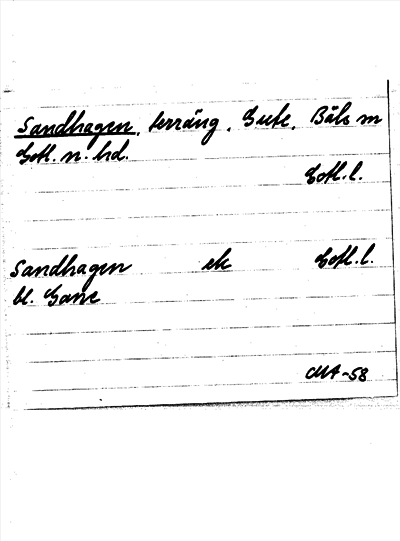 Sandhagen, terräng, Gute, Bäls sn
Gotl. n. hd.
Gotl. l.
Sandhagen ek Gotl. l.
bl. Gane
CMA-58